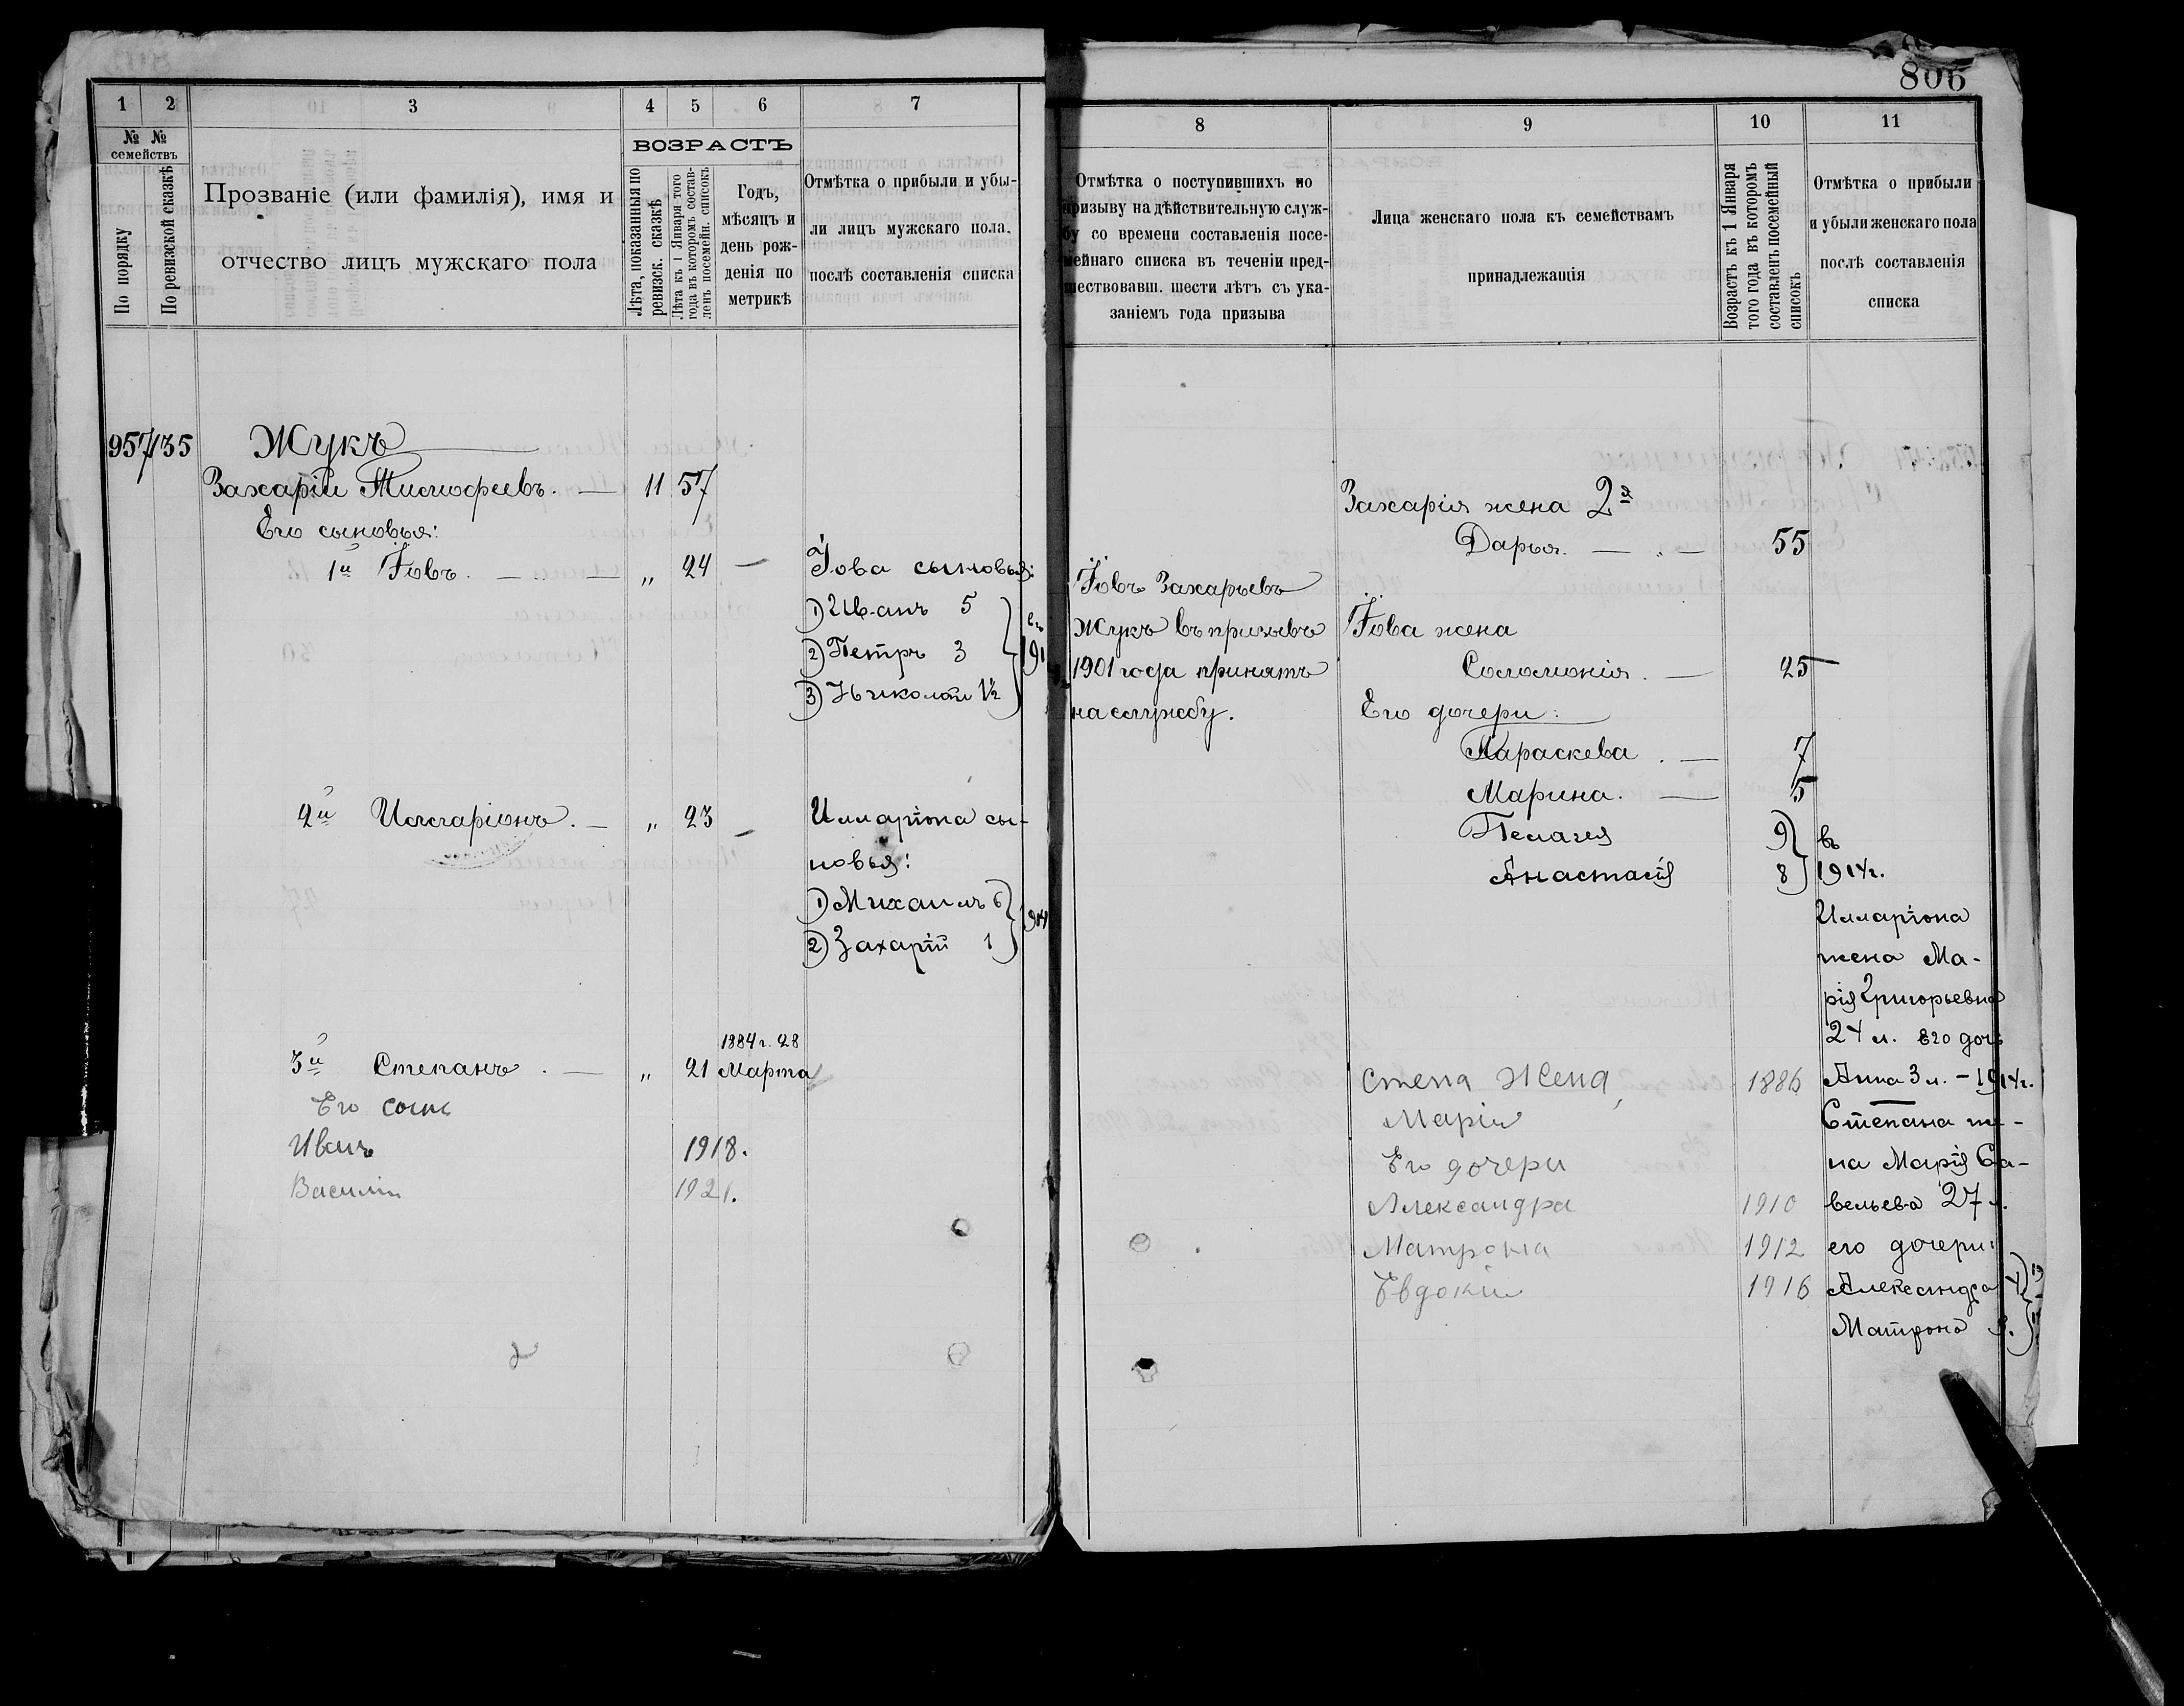 806
1 2 3 4 5 6 7
№ № семействъ
По порядку
По ревизской сказкѣ
Прозваніе (или фамилія), имя и
отчество лицъ мужскаго пола
ВОЗРАСТЪ
Лѣта, показанныя по
ревизск. сказкѣ
Лѣта къ 1 Января того
года въ которомъ состав-
ленъ посемейн. списокъ
Годъ,
мѣсяцъ и
день рож-
денія по
метрикѣ
Отмѣтка о прибыли и убы-
ли лицъ мужскаго пола,
послѣ составленія списка
957 135 Жукъ
Захарій Тимофеевъ. — 11 57
Его сыновья:
1й Іовъ. — „ 24 —
Іова сыновья:
1) Иванъ 5
2) Петръ 3
3) Николай 1½
въ
191
2й Илларіонъ. — „ 23 —
Илларіона сы-
новья:
1) Михаилъ 6
2) Захарій 1
1914
1884 г. 28
3й Степанъ. — „ 21 Марта
Его сынъ
Иванъ 1918.
Василій 1921.
8 9 10 11
Отмѣтка о поступившихъ по
призыву на дѣйствительную служ-
бу со времени составленія посе-
мейнаго списка въ теченіи пред-
шествовавш. шести лѣтъ съ ука-
заніемъ года призыва
Лица женскаго пола къ семействамъ
принадлежащія
Возрастъ къ 1 Января
того года въ которомъ
составленъ посемейный
списокъ
Отмѣтка о прибыли
и убыли женскаго пола
послѣ составленія
списка
Іовъ Захарьевъ
Жукъ въ призывъ
1901 года принятъ
на службу.
Захарія жена 2я
Дарья. — 55
Іова жена
Соломонія. — 25
Его дочери:
Параскева. — 7
Марина. — 5
Пелагея 9
Анастасія 8
въ
1914г.
Илларіона
жена Ма-
рія Григорьевна
24 л. его дочь
Анна 3 л. - 1914г.
Степа Жена 1886
Марія
Его дочери
Александра 1910
Матрона 1912
Евдокія 1916
Степана же-
на Марія Са-
вельева 27 л.
его дочери:
Александра 4
Матрона